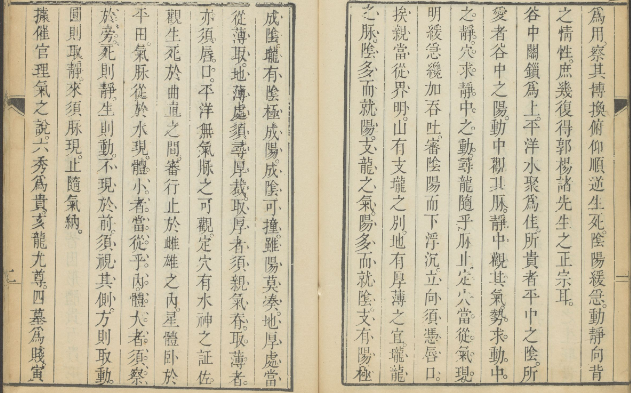 爲用察其轉換俯仰順逆生死陰陽緩急動靜向背
之情性庶幾復得郭楊諸先生之正宗耳
谷中關鎖爲上平洋水聚爲佳所貴者平中之陰所
愛者谷中之陽動中觀其脉靜中觀其氣勢求動中
之靜穴求靜中之動尋龍隨乎脉止定穴當從氣現
明緩急纔加吞吐審陰陽而下浮沉立向須憑唇口
挨親當從界明山有支壠之別地有厚薄之宜壠龍
之脉陰多而就陽支龍之氣陽多而就陰支有陽極
成陰壠有陰極成陽成陰可撞雖陽莫湊地厚處當
從薄取地薄處須尋厚裁取厚者須親氣脊取薄者
亦須唇口平洋無氣脉之可觀定穴有水神之証佐
觀生死於曲直之間審行止於雌雄之內星體卧於
平田氣脉從於水現體小者當從乎內體大者須察
於旁死則靜生則動不現於前須視其側方則取動
圓則取靜來須脉現止隨氣納
據催官理氣之說六秀爲貴亥龍尤尊四墓爲賤寅